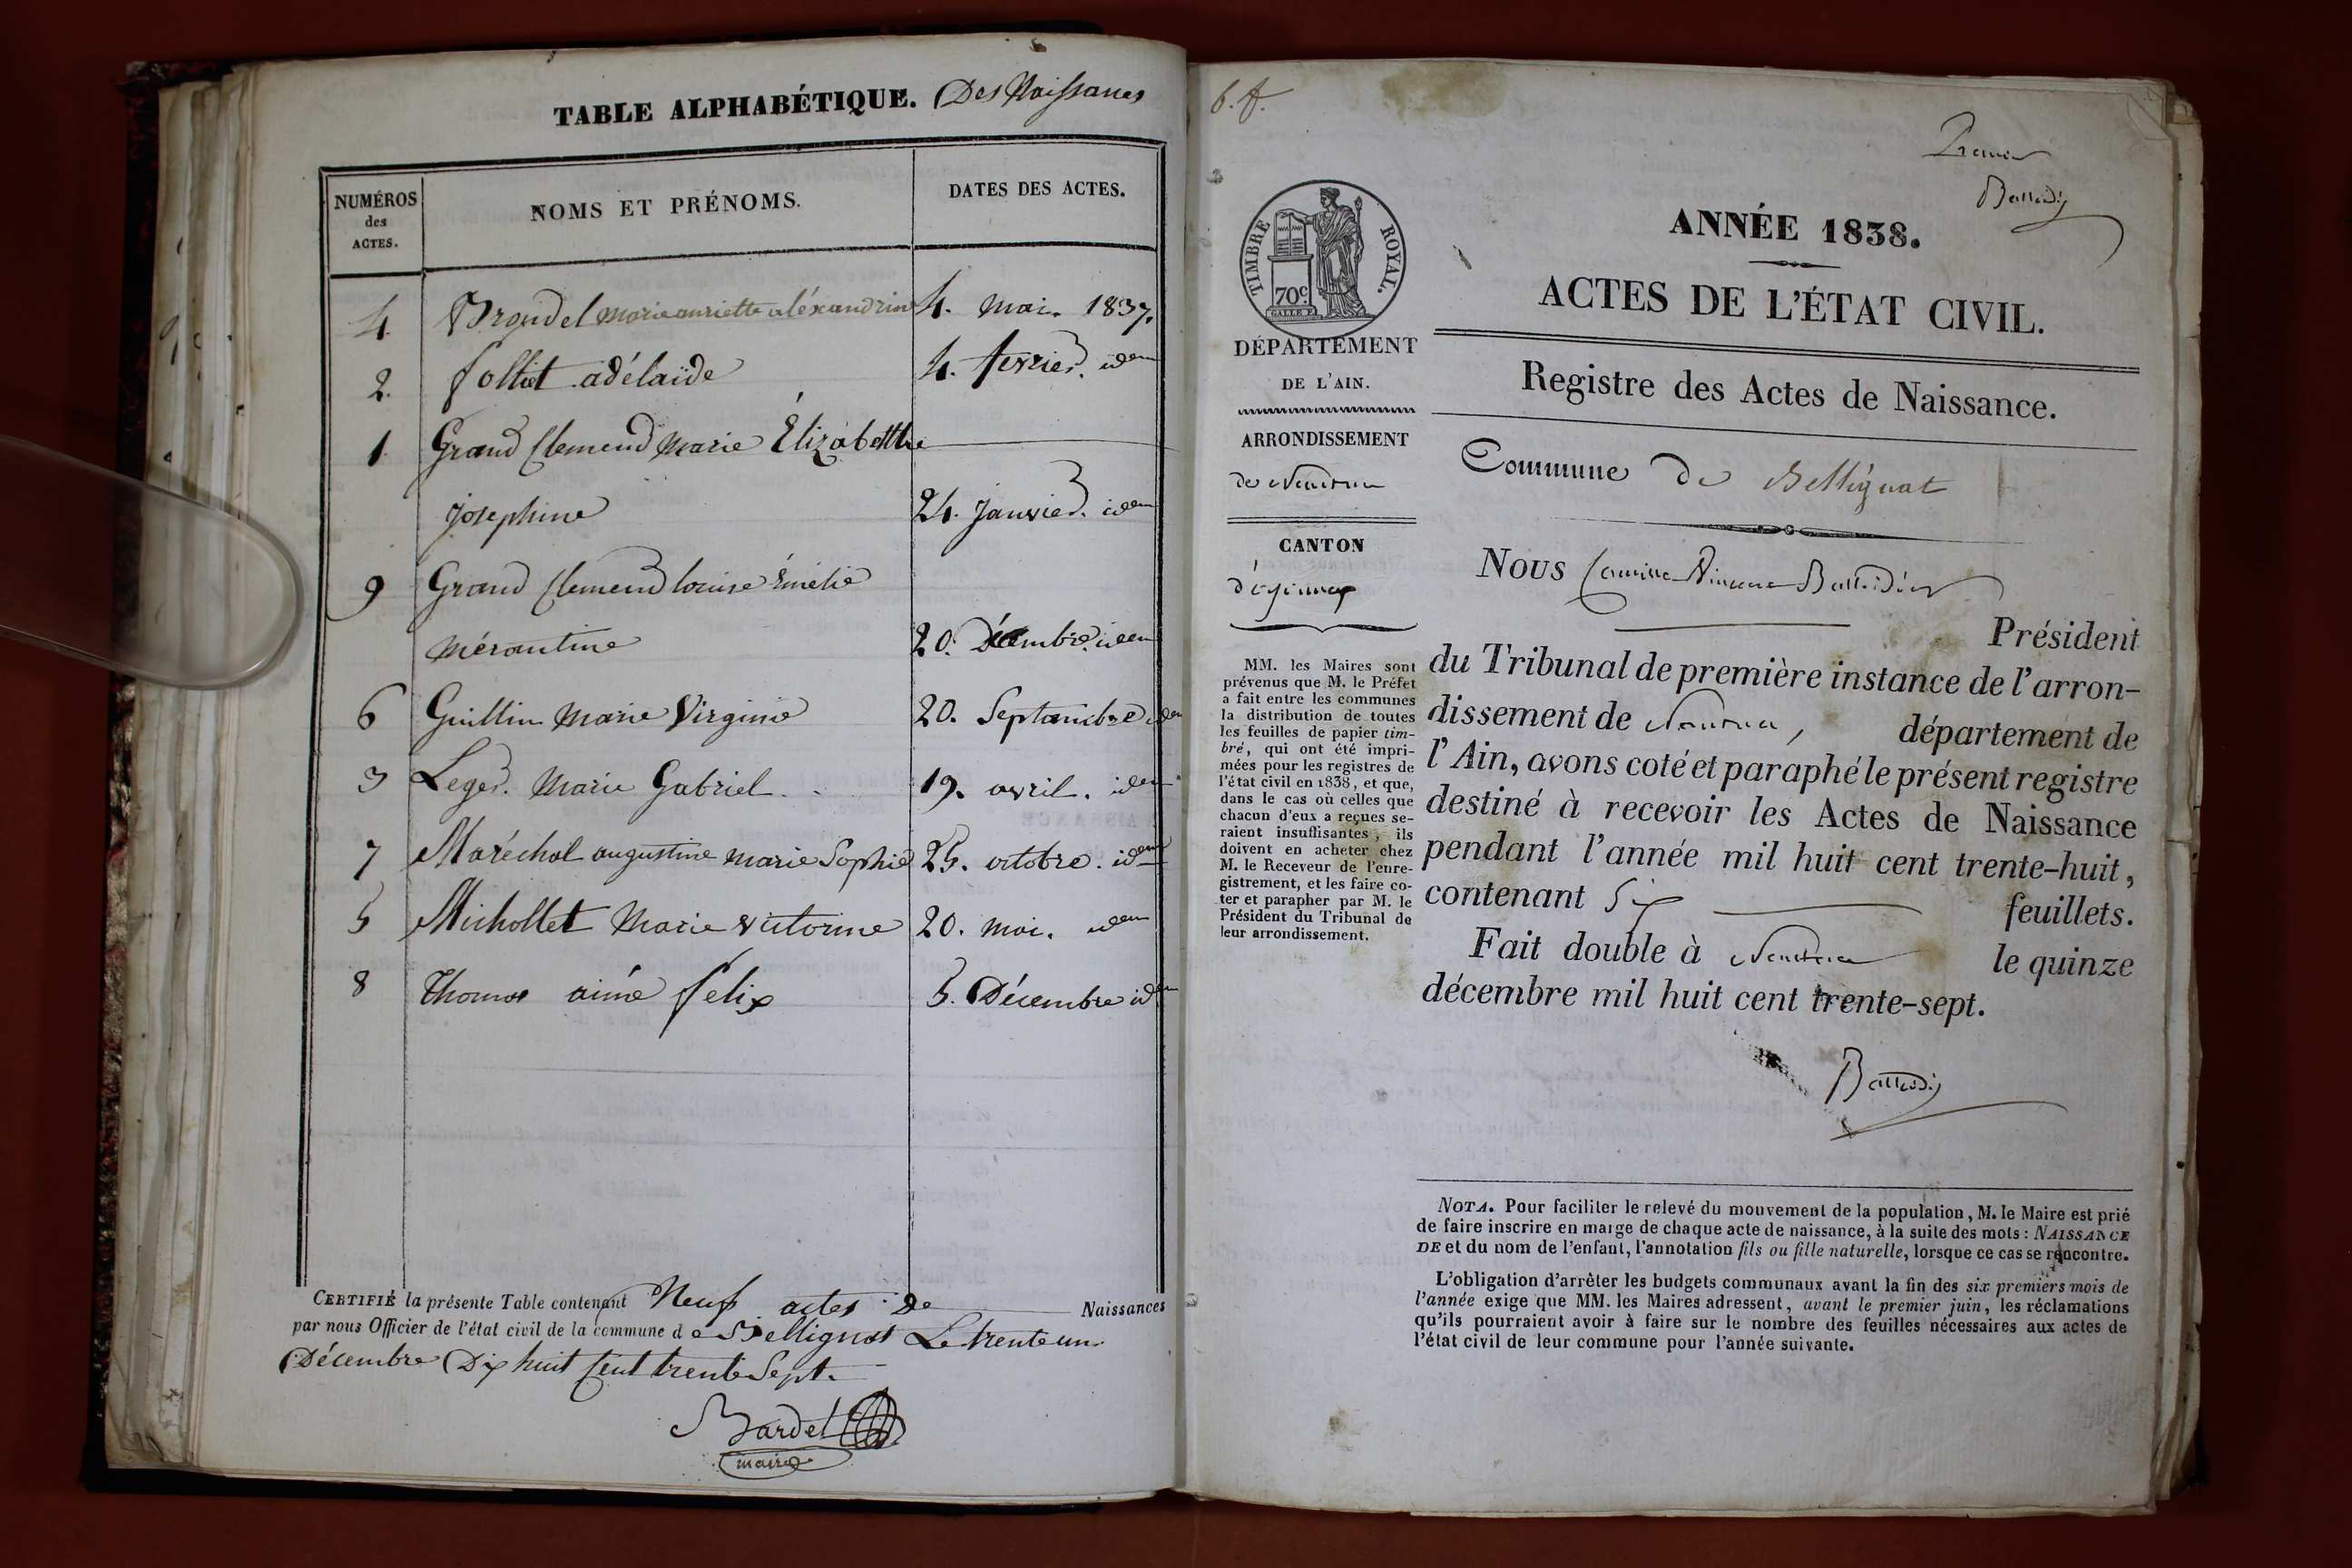 TABLE ALPHABÉTIQUE. Des Naissances
NUMÉROS
des
ACTES.
NOMS ET PRÉNOMS.
DATES DES ACTES.
4. Brondel marie auriette aléxandrine 4. mai. 1837.
2. folliet adélaïde 4. fevrier. idem
1 Grand Clemend Marie Élizabetthe
josephine 24. Janvier. idem
9 Grand Clemend louise Émélie
mérantine 20. Décembre. idem
6 Guillin Marie Virginie 20. Septambre idem
3 Leger. Marie Gabriel. 19. avril. idem
7 Maréchal augustine marie Sophie 25. octobre. idem
5 Michollet Marie victorine 20. mai. idem
8 Thomas aimé felix 5. Décembre idem
CERTIFIÉ la présente Table contenant Neuf actes de Naissances
par nous Officier de l'état civil de la commune de Bellignat Le trente un
Décembre Dix huit Cent trente Sept.
Bardet
maire
6. f.
Premier
TIMBRE ROYAL.
70c
DÉPARTEMENT
DE L'AIN.
ARRONDISSEMENT
de Nantua
CANTON
d'oyonnax
MM. les Maires sont
prévenus que M. le Préfet
a fait entre les communes
la distribution de toutes
les feuilles de papier tim-
bré, qui ont été impri-
mées pour les registres de
l'état civil en 1838, et que,
dans le cas où celles que
chacun d'eux a reçues se-
raient insuffisantes, ils
doivent en acheter chez
M. le Receveur de l'enre-
gistrement, et les faire co-
ter et parapher par M. le
Président du Tribunal de
leur arrondissement.
ANNÉE 1838.
ACTES DE L'ÉTAT CIVIL.
Registre des Actes de Naissance.
Commune de Bellignat
Nous
Président
du Tribunal de première instance de l'arron-
dissement de Nantua, département de
l'Ain, avons coté et paraphé le présent registre
destiné à recevoir les Actes de Naissance
pendant l'année mil huit cent trente-huit,
contenant Six feuillets.
Fait double à Nantua le quinze
décembre mil huit cent trente-sept.
NOTA. Pour faciliter le relevé du mouvement de la population, M. le Maire est prié
de faire inscrire en marge de chaque acte de naissance, à la suite des mots : NAISSANCE
DE et du nom de l'enfant, l'annotation fils ou fille naturelle, lorsque ce cas se rencontre.
L'obligation d'arrêter les budgets communaux avant la fin des six premiers mois de
l'année exige que MM. les Maires adressent, avant le premier juin, les réclamations
qu'ils pourraient avoir à faire sur le nombre des feuilles nécessaires aux actes de
l'état civil de leur commune pour l'année suivante.